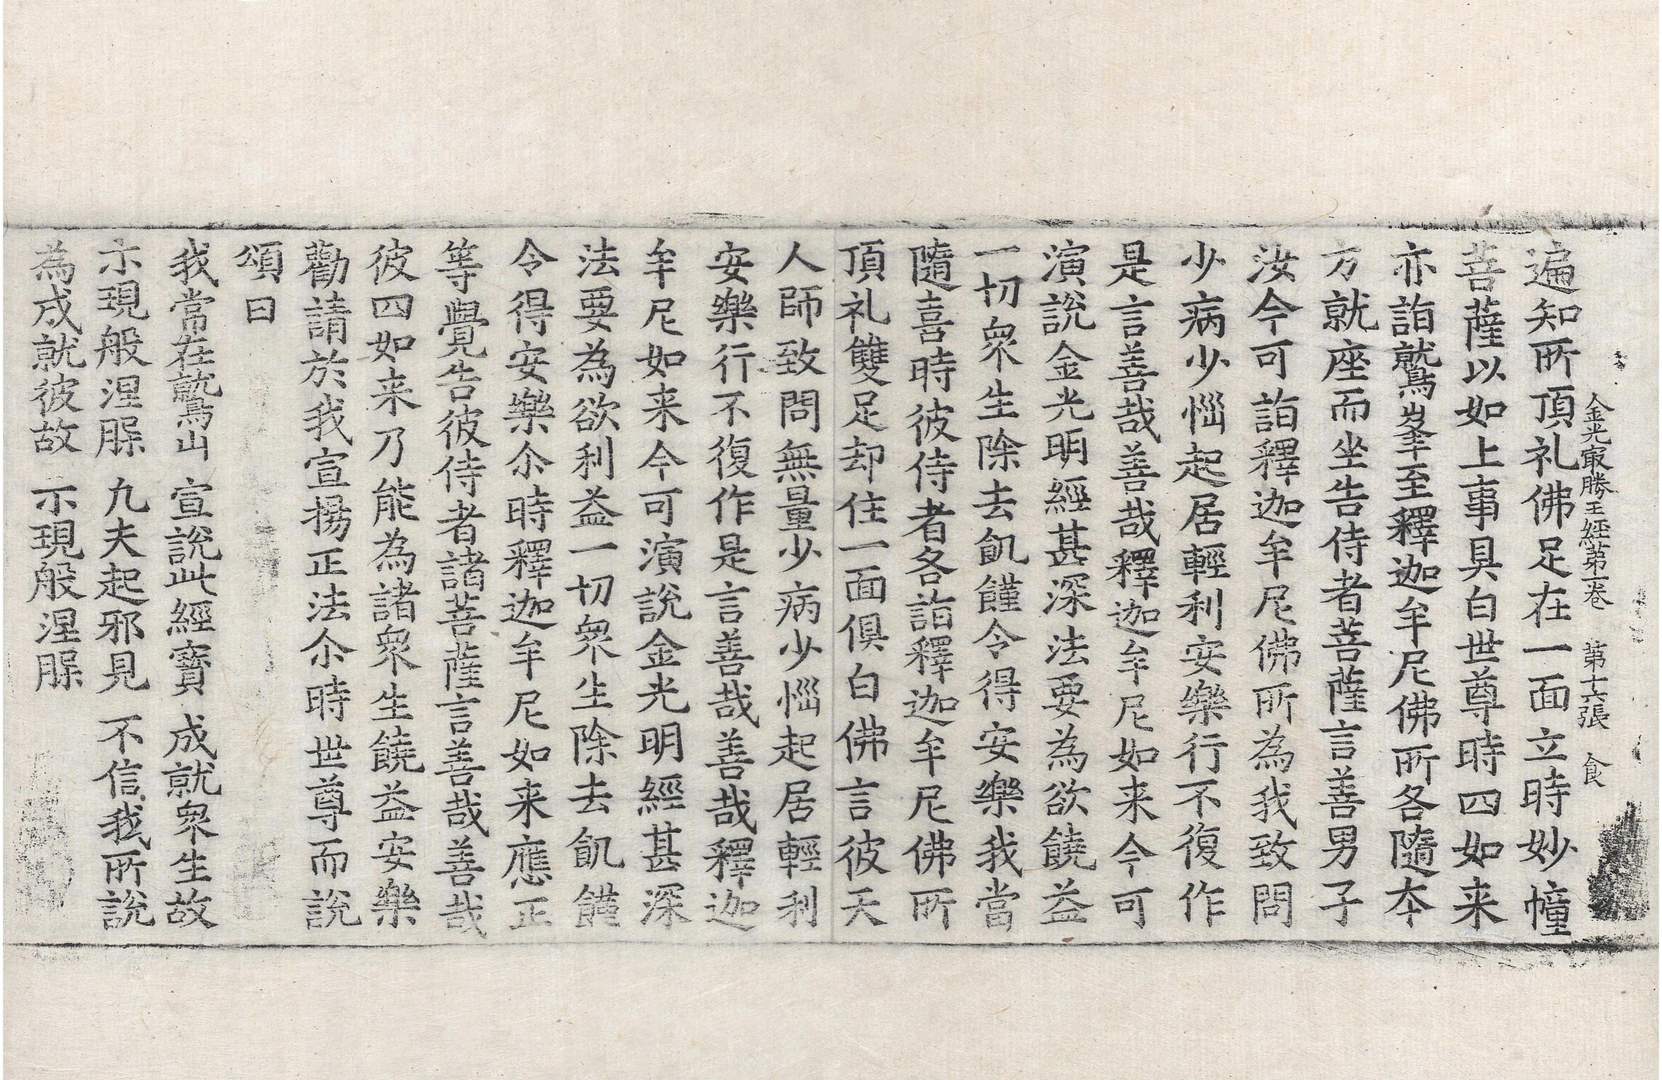 金光㝡勝王經第一卷 第十六張 食
遍知所頂礼佛足在一面立時妙幢
菩薩以如上事具白世尊時四如来
亦詣鷲峯至釋迦牟尼佛所各隨本
方就座而坐告侍者菩薩言善男子
汝今可詣釋迦牟尼佛所為我致問
少病少惱起居輕利安樂行不復作
是言善哉善哉釋迦牟尼如来今可
演說金光明經甚深法要為欲饒益
一切衆生除去飢饉令得安樂我當
隨喜時彼侍者各詣釋迦牟尼佛所
頂礼雙足却住一面俱白佛言彼天
人師致問無量少病少惱起居輕利
安樂行不復作是言善哉善哉釋迦
牟尼如来今可演說金光明經甚深
法要為欲利益一切衆生除去飢饉
令得安樂尒時釋迦牟尼如来應正
等覺告彼侍者諸菩薩言善哉善哉
彼四如来乃能為諸衆生饒益安樂
勸請於我宣揚正法尒時世尊而說
頌曰
我常在鷲山 宣說此經寶 成就衆生故
示現般涅槃 凡夫起邪見 不信我所說
為成就彼故 示現般涅槃